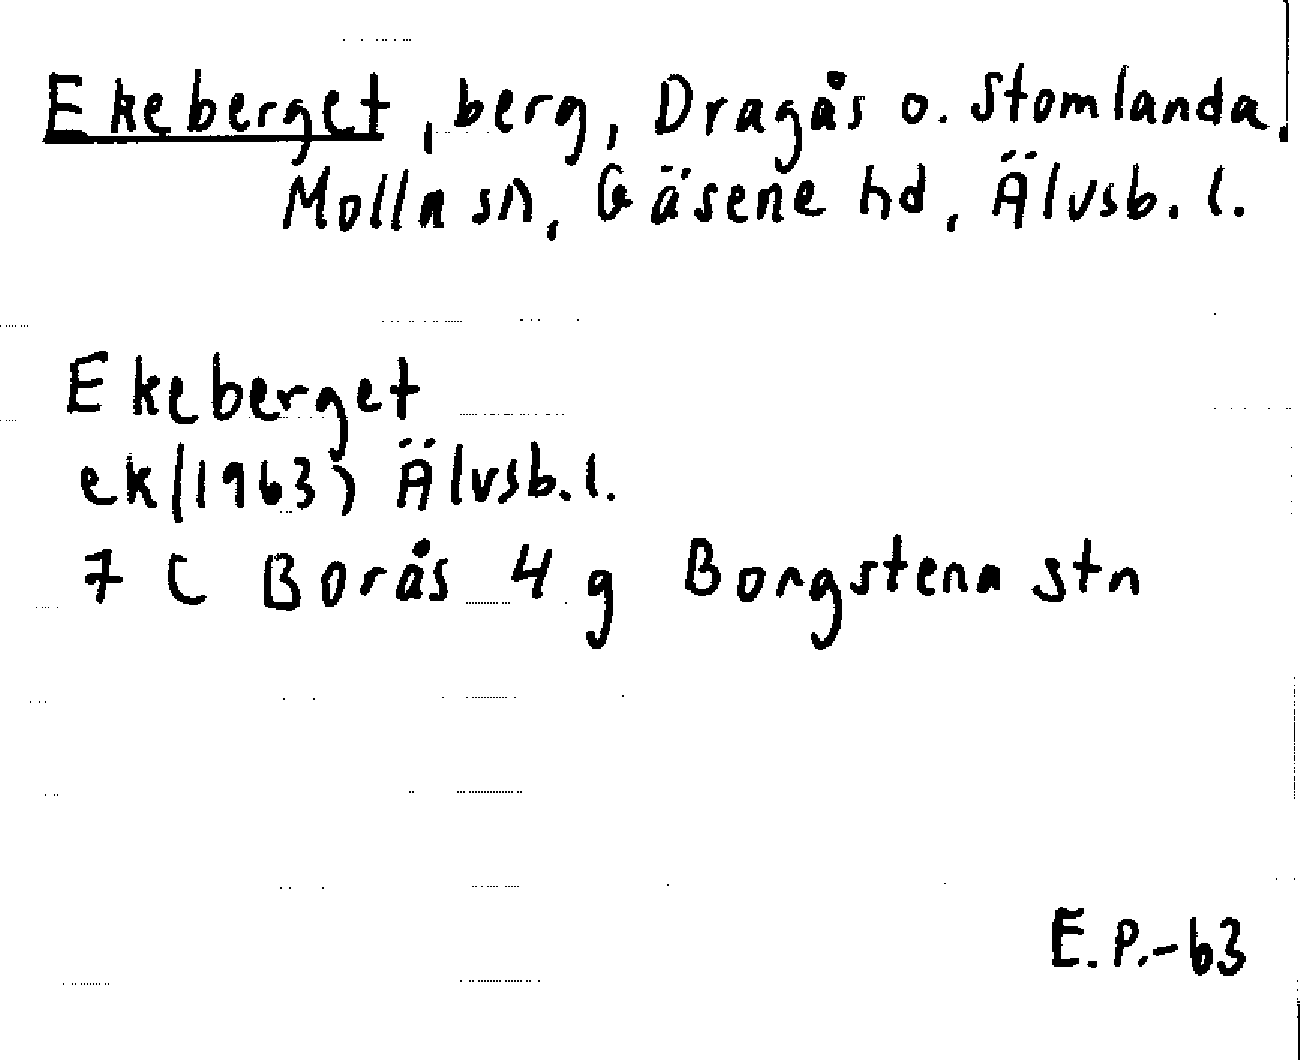 Ekeberget, berg, Dragås o. Stomlanda,
Molla sn, Gäsene hd, Älvsb. l.
Ekeberget
ek (1963) Älvsb. l.
7 C Borås 4 g Borgstena stn
E. P.-63